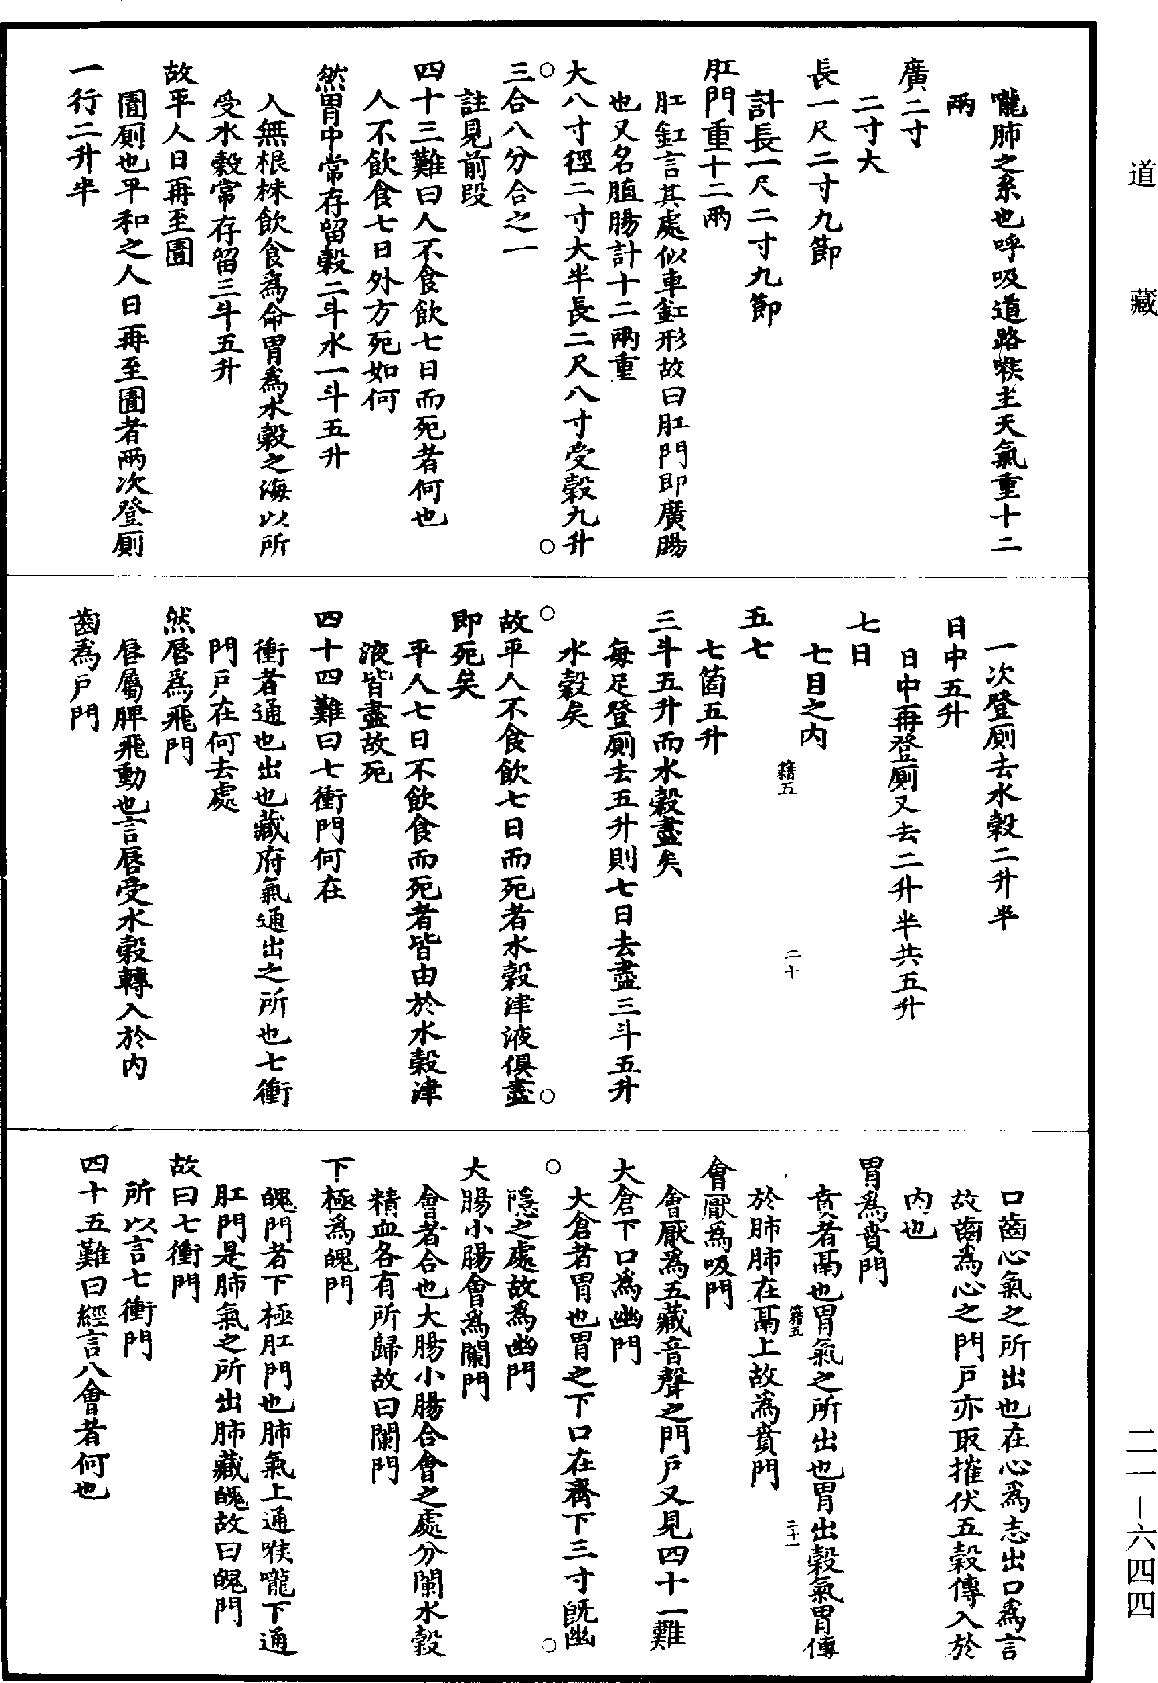 道藏
嚨肺之系也呼吸道路喉主天氣重十二
兩
廣二寸
二寸大
長一尺二寸九節
計長一尺二寸九節
肛門重十二兩
肛釭言其處似車釭形故曰肛門即廣腸
也又名䐈腸計十二兩重
大八寸徑二寸大半長二尺八寸受穀九升
三合八分合之一
註見前段
四十三難曰人不食飲七日而死者何也
人不飲食七日外方死如何
然胃中常存留穀二斗水一斗五升
人無根株飲食爲命胃爲水穀之海以所
受水穀常存留三斗五升
故平人日再至圊
圊厠也平和之人日再至圊者兩次登厠
一行二升半
一次登厠去水穀二升半
日中五升
日中再登厠又去二升半共五升
七日
七日之內
五七
七箇五升
三斗五升而水穀盡矣
每足登厠去五升則七日去盡三斗五升
水穀矣
故平人不食飲七日而死者水穀津液俱盡
即死矣
平人七日不飲食而死者皆由於水穀津
液皆盡故死
四十四難曰七衝門何在
衝者通也出也藏府氣通出之所也七衝
門戶在何去處
然脣爲飛門
脣屬脾飛動也言脣受水穀轉入於內
齒爲戶門
籍五
二十
口齒心氣之所出也在心爲志出口爲言
故齒爲心之門戶亦取摧伏五穀傳入於
內也
胃爲賁門
賁者鬲也胃氣之所出也胃出穀氣胃傳
於肺肺在鬲上故爲賁門
會厭爲吸門
會厭爲五藏音聲之門戶又見四十一難
大倉下口爲幽門
大倉者胃也胃之下口在齊下三寸旣幽
隱之處故爲幽門
大腸小腸會爲闌門
會者合也大腸小腸合會之處分闌水穀
精血各有所歸故曰闌門
下極爲魄門
魄門者下極肛門也肺氣上通喉嚨下通
肛門是肺氣之所出肺藏魄故曰魄門
故曰七衝門
所以言七衝門
四十五難曰經言八會者何也
籍五
二十一
二一—六四四